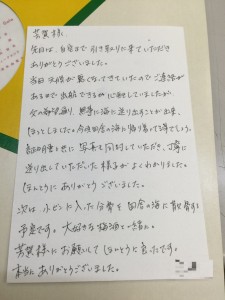 芳賀様。
先日は、自宅まで引き取りに来ていただき
ありがとうございました。
当日天候が悪くなってきていたのでご遺灰が
あるので出航できるか心配していましたが、
父の希望通り、無事に海に送り出すことが出来、
ほっとしました。今頃田舎の海に帰り着いてる事でしょう。
証明書と共に写真を同封していただき、丁寧に
送り出していただいた様子がよくわかりました。
ほんとうにありがとうございました。
次は小ビンに入った分骨を田舎の海に散骨する
予定です。大好きな梅酒と一緒に。
芳賀様にお願いしてほんとうに良かったです。
本当にありがとうございました。